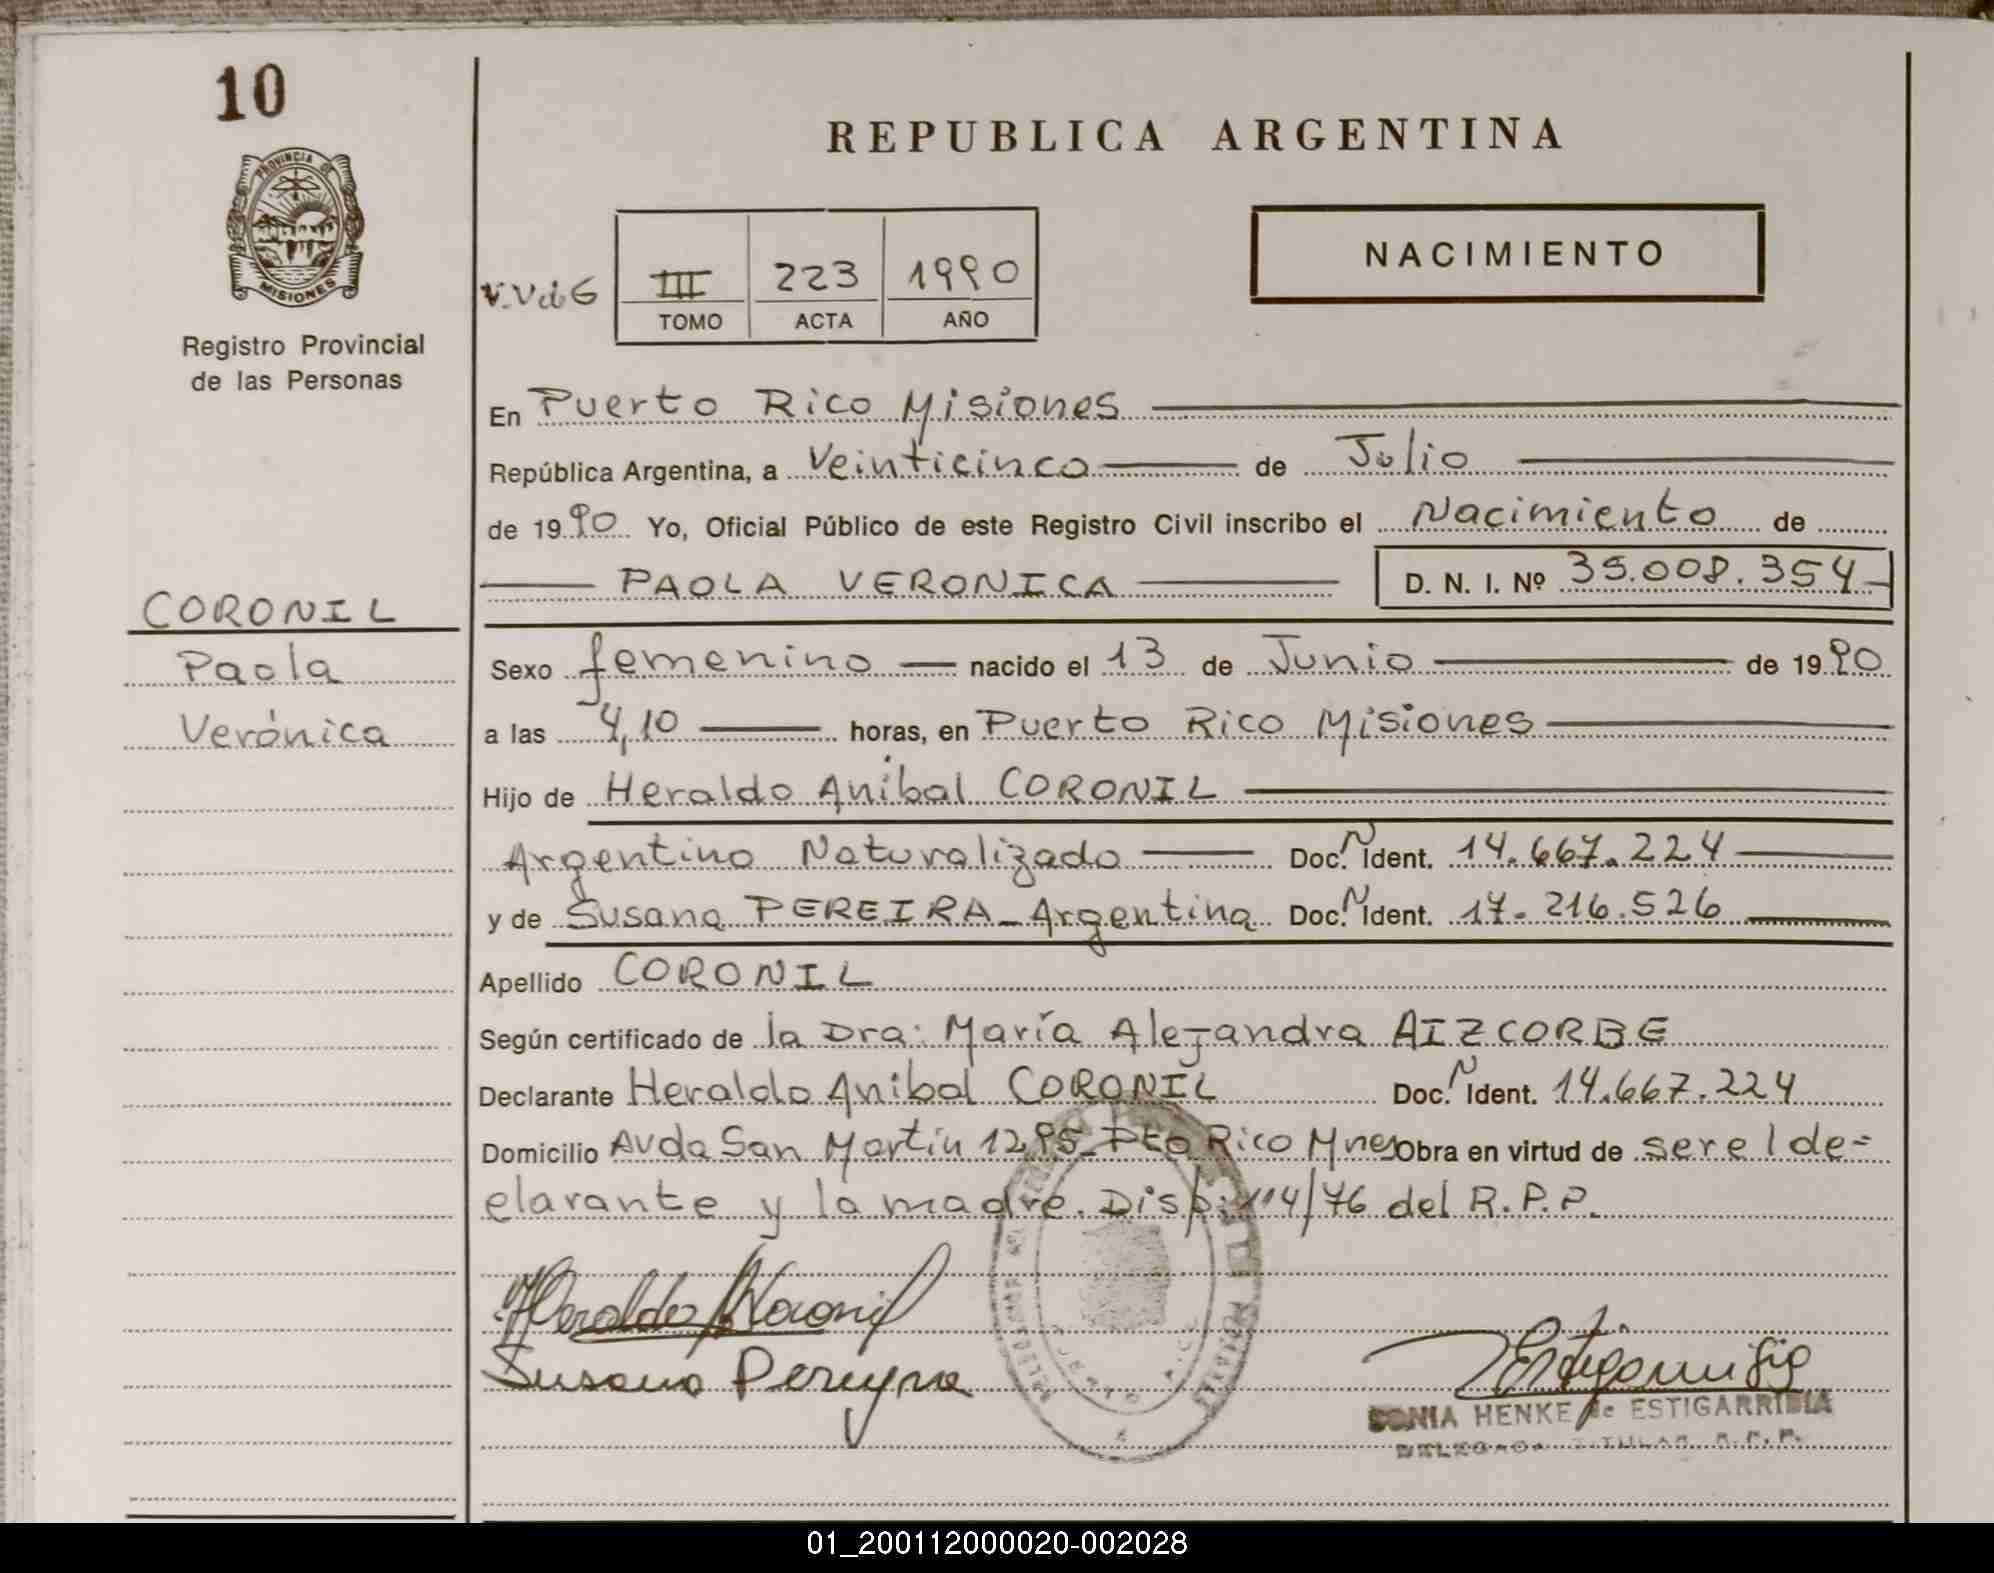 10
PROVINCIA DE
MISIONES
Registro Provincial
de las Personas
CORONIL
Paola
Verónica
REPUBLICA ARGENTINA
NACIMIENTO
III 223 1990
TOMO ACTA AÑO
En Puerto Rico Misiones
República Argentina, a Veinticinco de Julio
de 1990 Yo, Oficial Público de este Registro Civil inscribo el Nacimiento de
PAOLA VERONICA D. N. I. Nº 35.008.354
Sexo femenino nacido el 13 de Junio de 1990
a las 4,10 horas, en Puerto Rico Misiones
Hijo de Heraldo Anibal CORONIL
Argentino Naturalizado Doc. N Ident. 14.667.224
y de Susana PEREIRA - Argentina Doc. N Ident. 17.216.526
Apellido CORONIL
Según certificado de la Dra: María Alejandra AIZCORBE
Declarante Heraldo Anibal CORONIL Doc. N Ident. 14.667.224
Domicilio Avda San Martín 1295 - Pto Rico Mnes Obra en virtud de ser el de=
clarante y la madre. Disp: 114/76 del R.P.P.
Heraldo A Coronil
Susana Pereyra
Estigarribia
SONIA HENKE de ESTIGARRIBIA
DELEGADA TITULAR R.P.P.
01_200112000020-002028